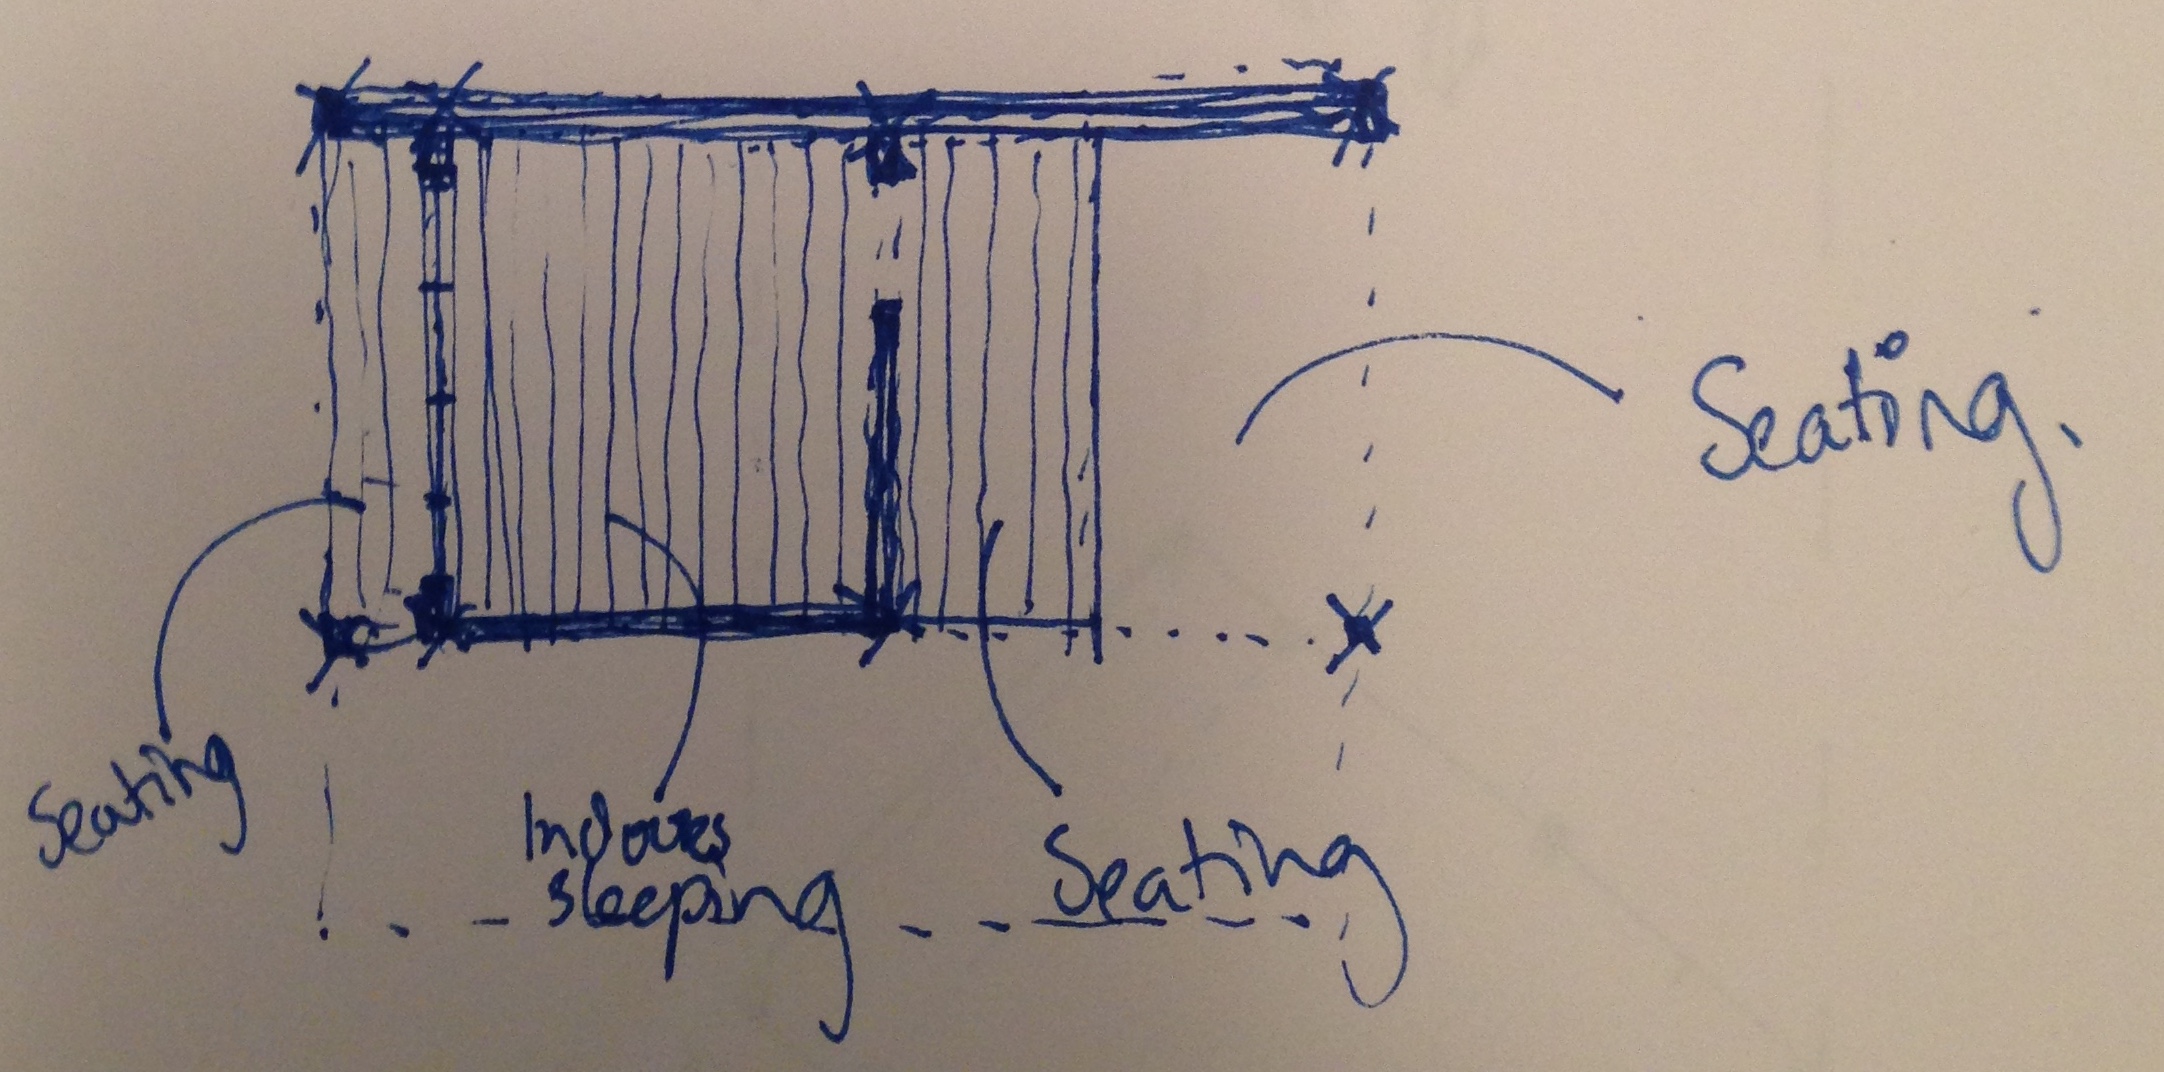 Seating.
Seating
Indoors
sleeping
Seating